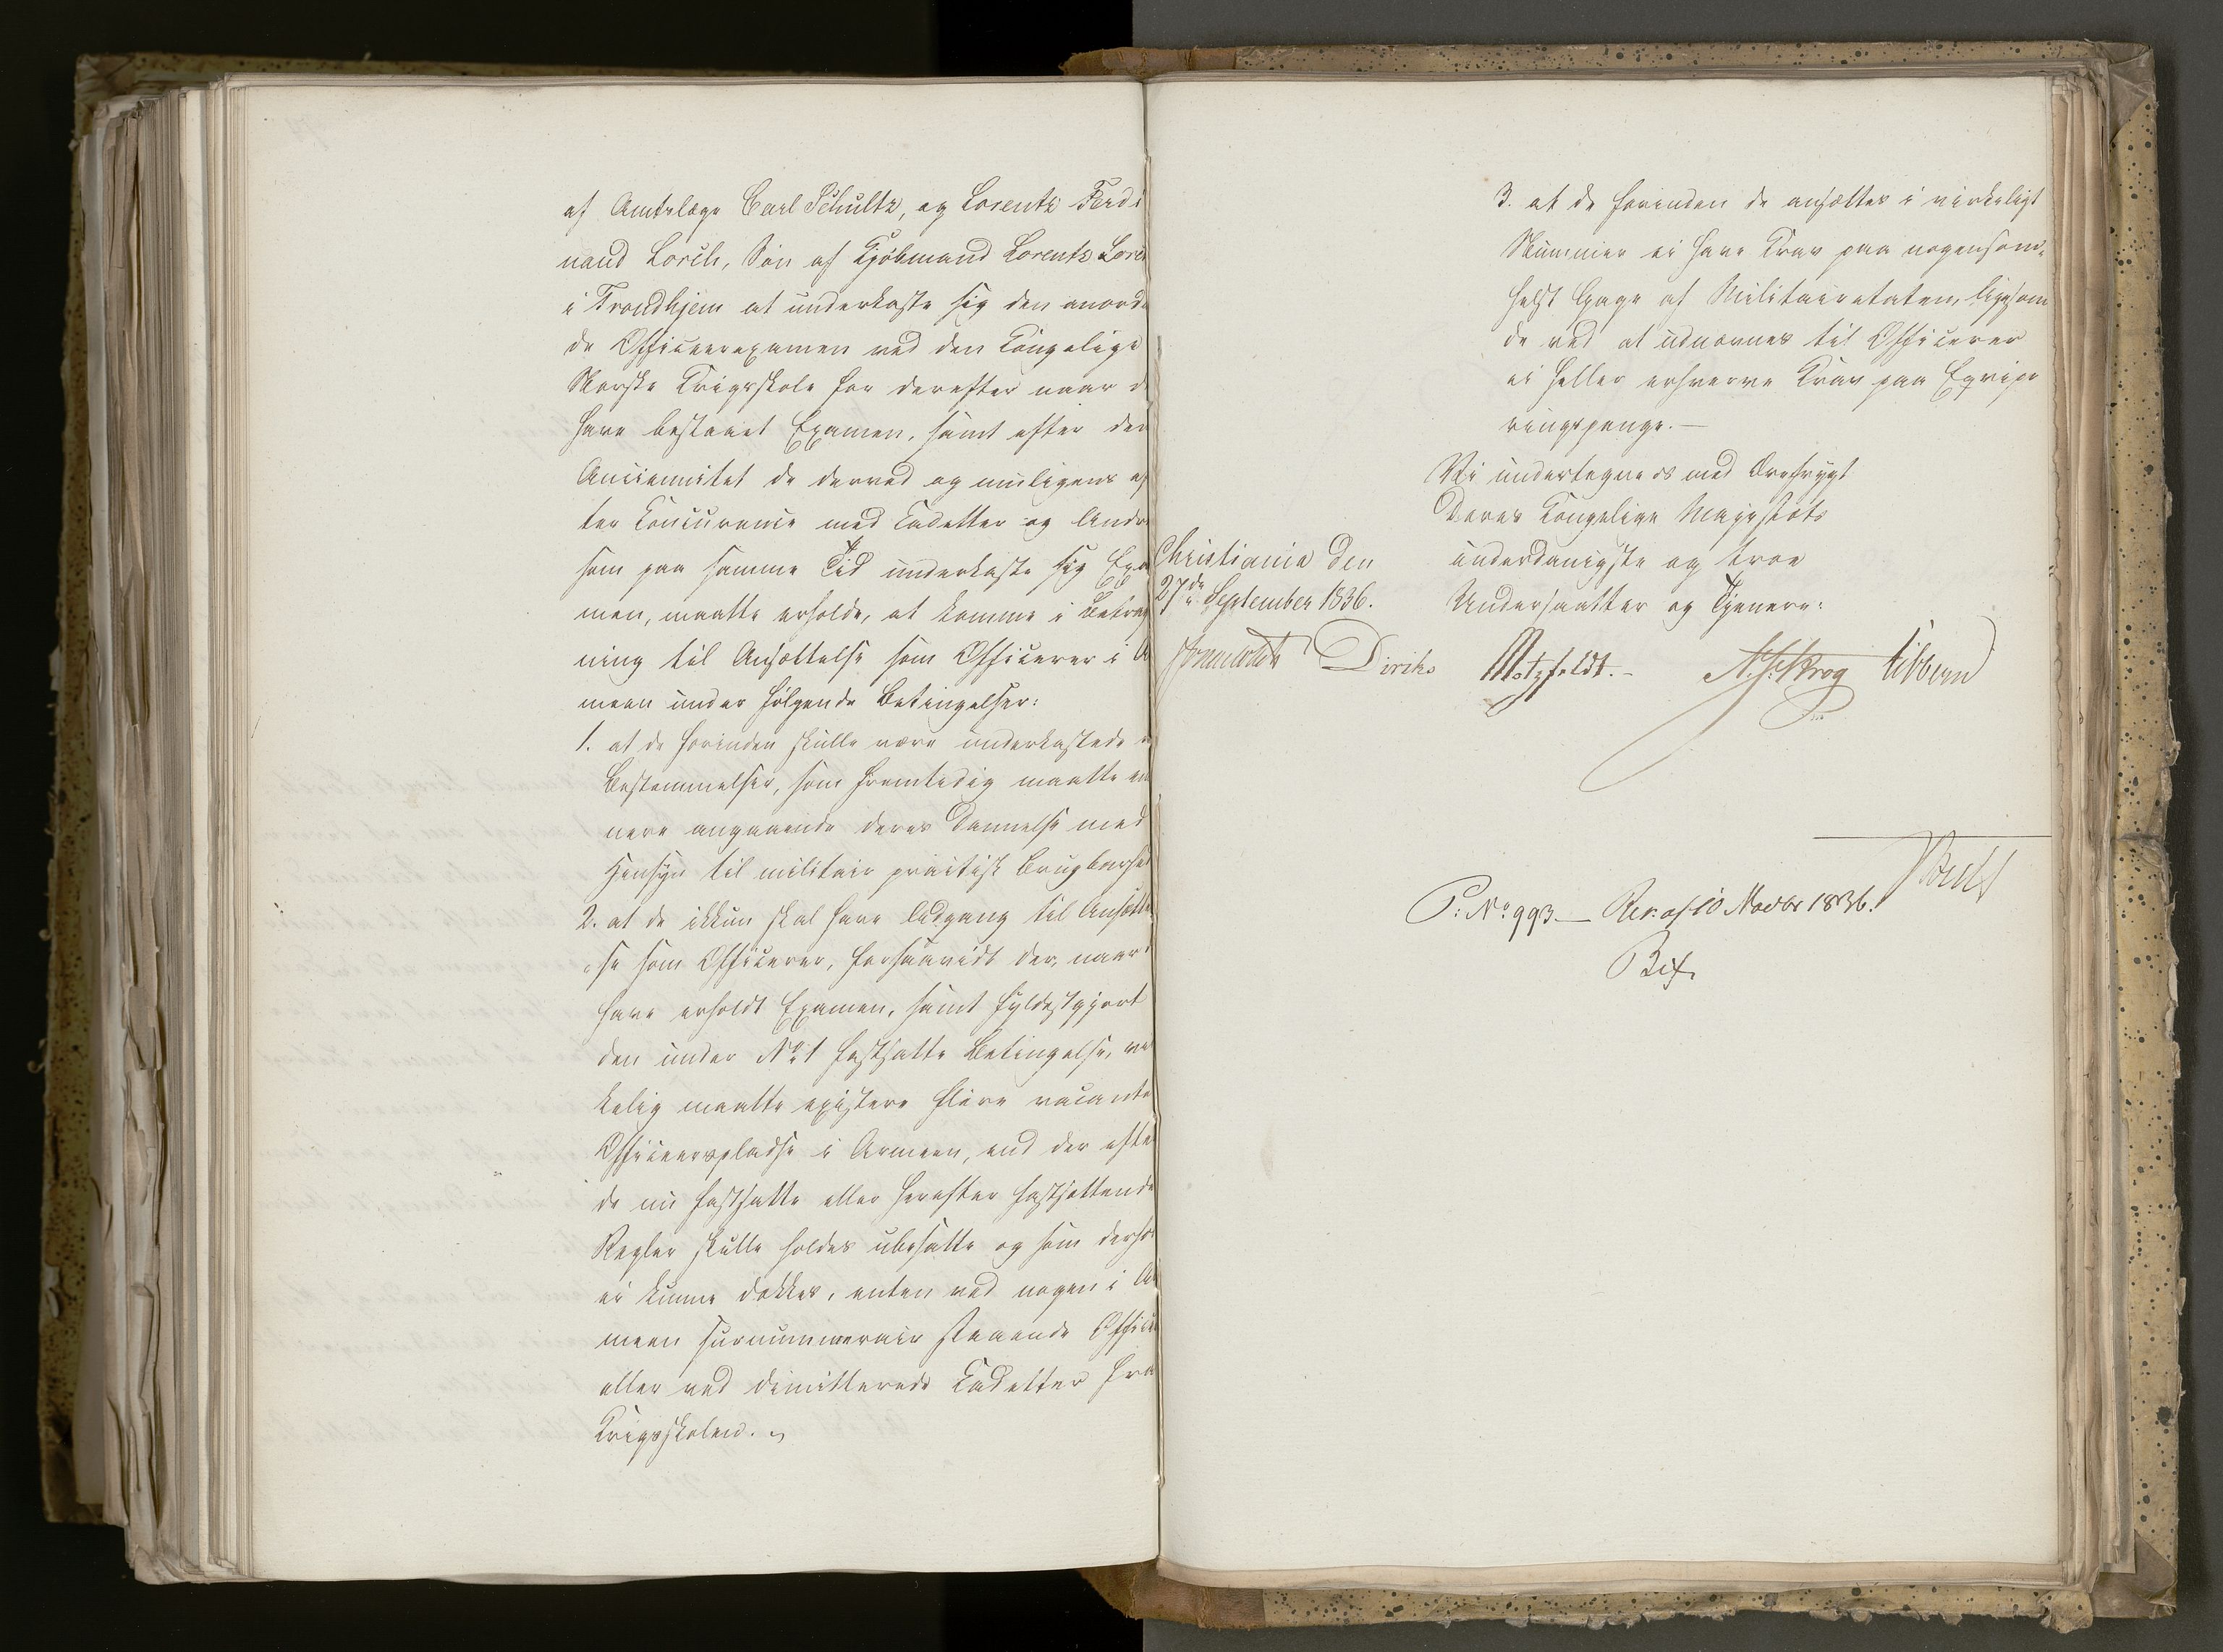 af Amtslæge Carl Schultz, og Lorentz Ferdi
nand Lorch, Søn af Kjøbmand Lorentz Lorc
i Trondhjem at underkaste sig den anord
de Officeerexamen ved den Kongelige
Norske Krigsskole for derefter naar d
have bestaaet Examen, samt efter den
Anciennitet de derved og muligens ef
ter Concurence med Cadetter og Andre
som paa samme Tid underkaste sig Exa
men, maatte erholde, at komme i Betrag
ning til Ansættelse som Officerer i A
meen under følgende Betingelser:
1. at de forinden skulle være underkastede
Bestemmelser, som fremtidig maatte
angaaende deres Dannelse med
Hensyn til militair practisk Brugbarhed
2. at de ikkun skal have Adgang til Ansætte
se som Officerer, forsaavidt der, naar
have erholdt Examen, samt fyldestgjort
den under No 1 fastsatte Betingelse, vir
kelig maatte existere flere vacante
Officeerspladse i Armeen, end der efte
de nu fastsatte eller herefter fastsættende
Regler skulle holdes ubesatte og som derfor
ei kunne dækkes, enten ved nogen i A
meen surnummerair staaende Office
eller ved dimitterede Cadetter fra
Krigsskolen.
3. at de forinden de ansættes i virkeligt
Nummer ei have Krav paa nogensom-
helst Gage af Militairetaten, ligesom
de ved at udnævnes til Officerer
ei heller erhverve Krav paa Eqvipe
ringspenge.—
Vi undertegne os med Ærefrygt
Deres Kongelige Majestæts
underdanigste og troe
Undersaatter og Tjenere:
Christiania den
27de September 1836.
Diriks Motzfeldt.- Krog Vibbern
P: No 993.— Res: af 10 Novbr 1836.